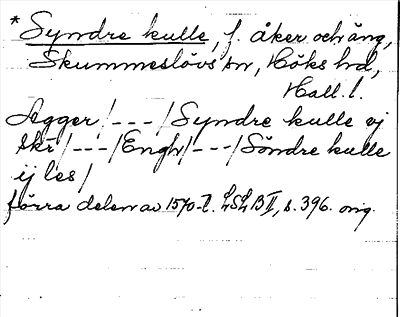 * Syndre kulle, f. åker och äng,
Skummeslövs sn, Höks hd,
Hall. l.
Legger /---/ Syndre kulle vj
skr /---/ Engh /---/ Söndre kulle
ij les /
förra delen av 1570-t. LSLB II, s. 396. orig.